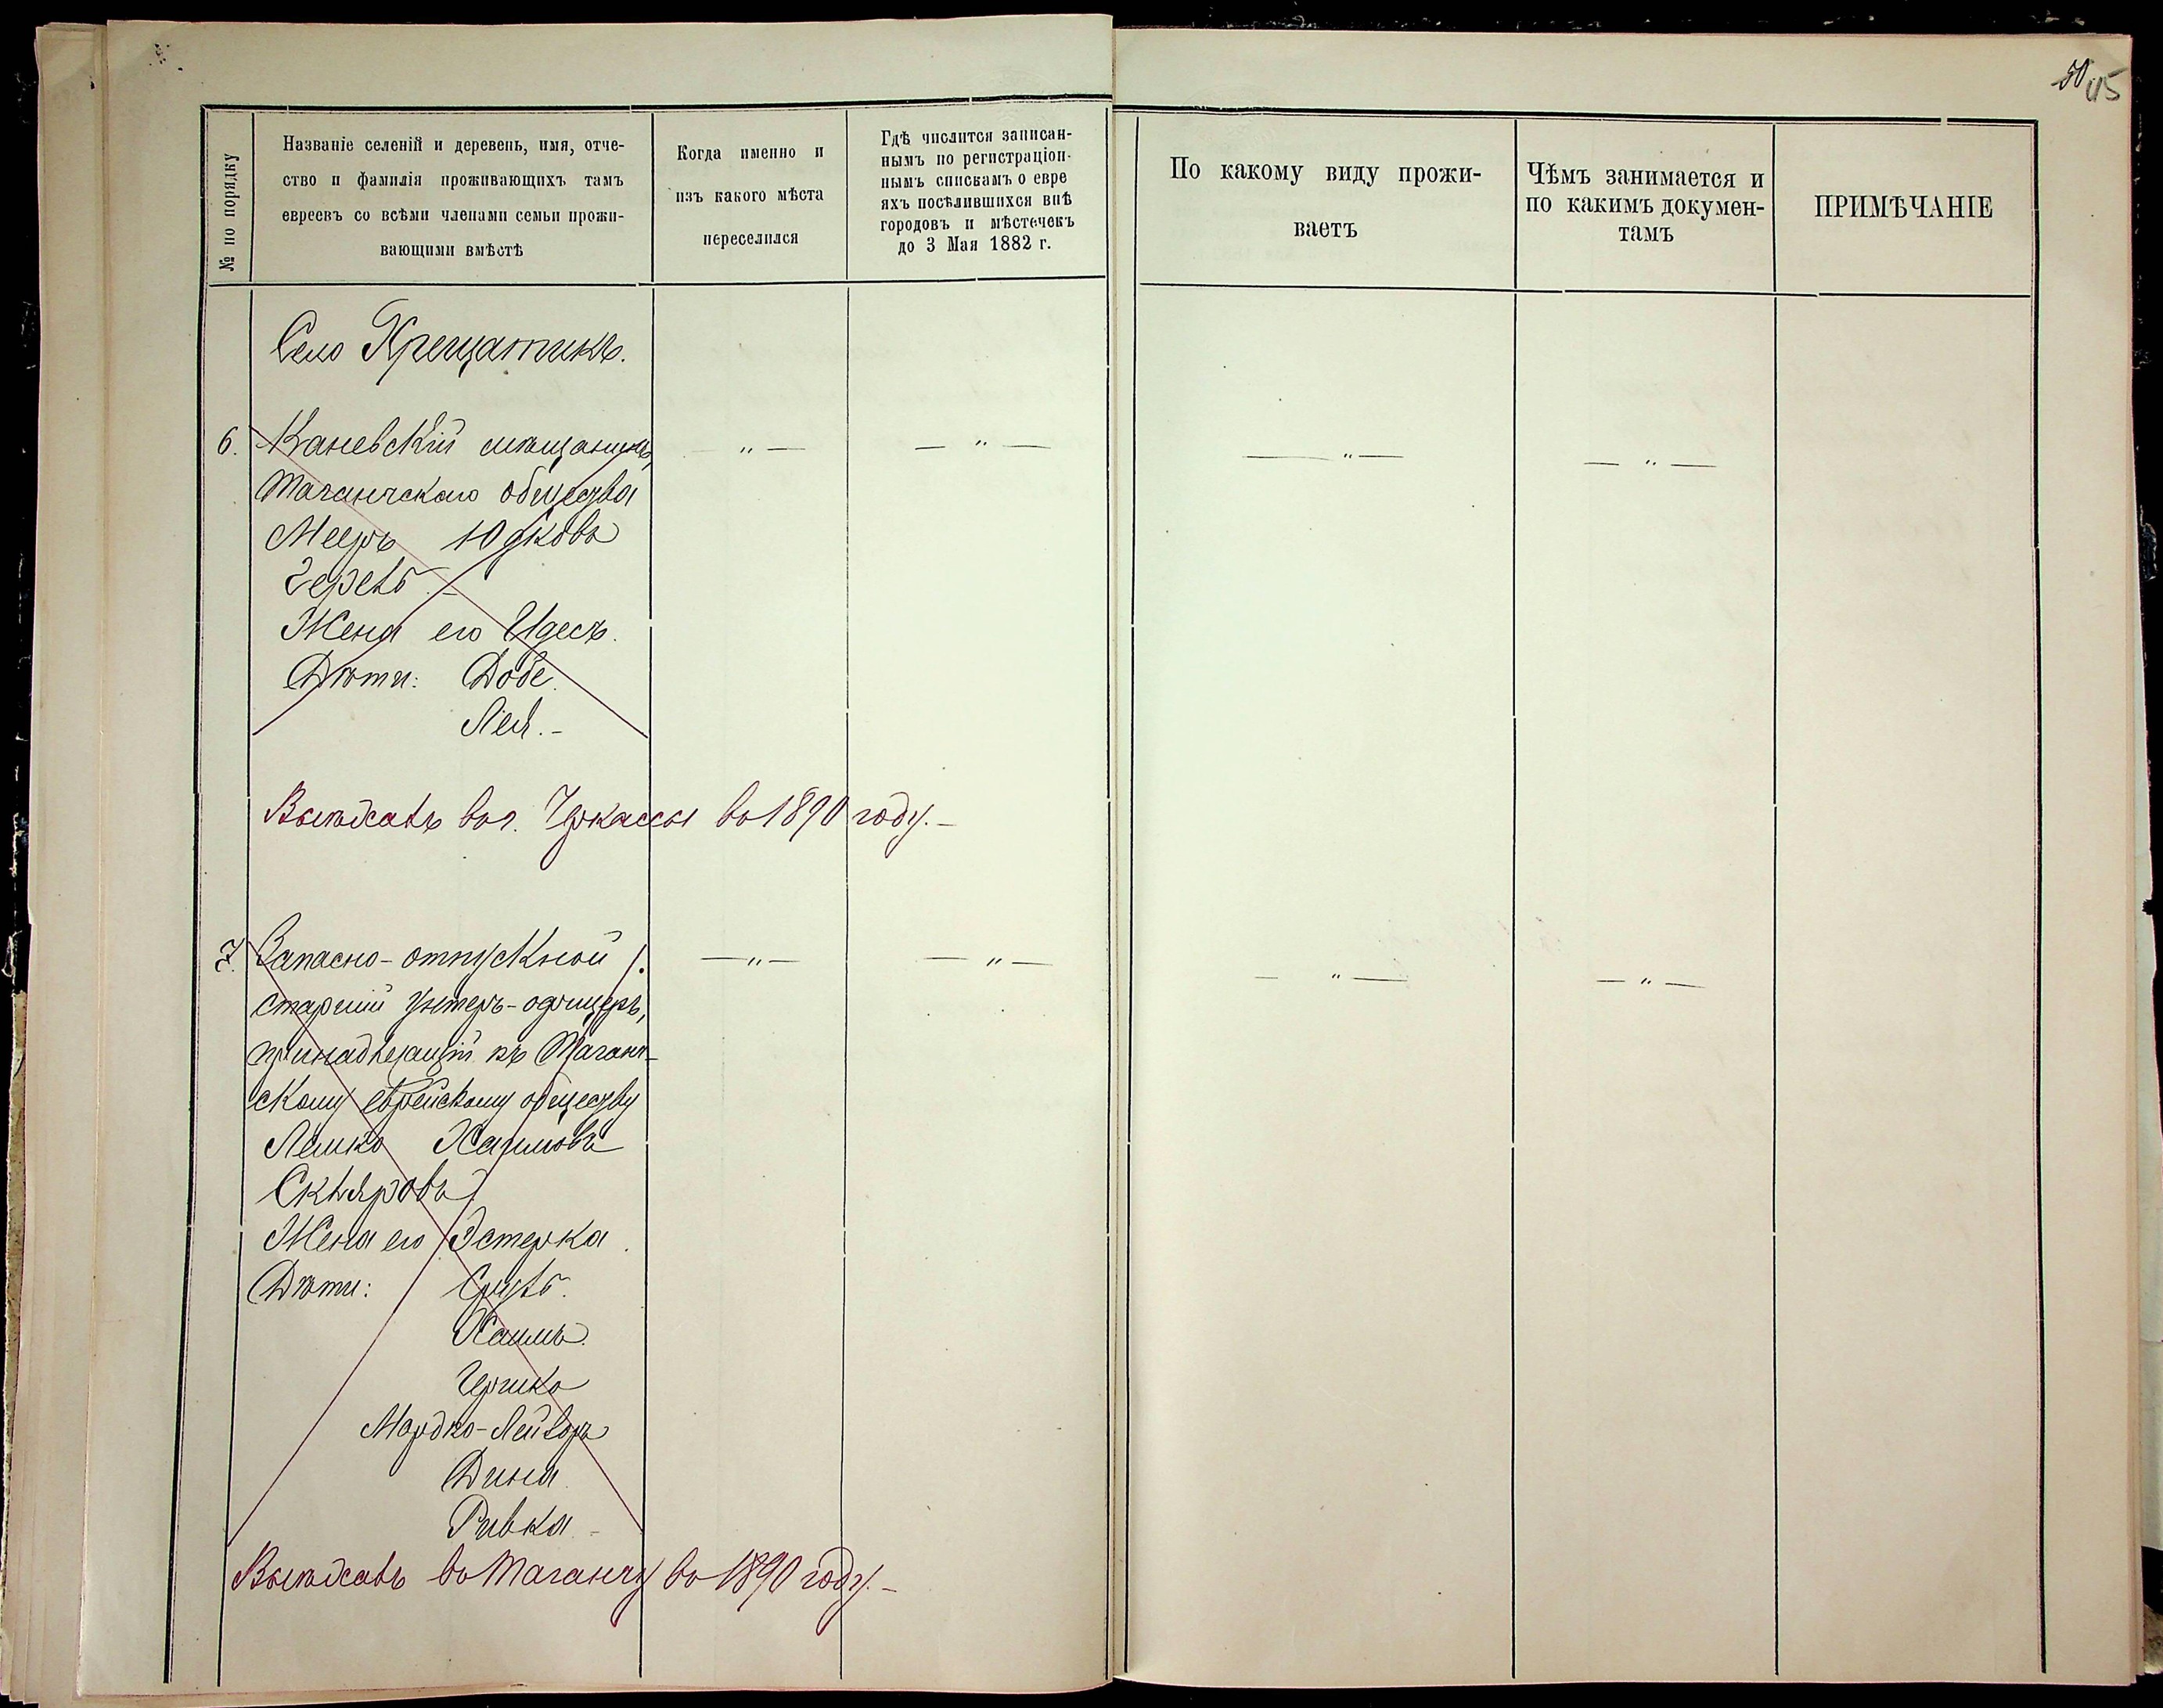 50 45
№ по порядку
Названіе селеній и деревень, имя, отче-
ство и фамилія проживающихъ тамъ
евреевъ со всѣми членами семьи прожи-
вающими вмѣстѣ
Когда именно и
изъ какого мѣста
переселился
Гдѣ числится записан-
нымъ по регистраціон-
нымъ спискамъ о евре
яхъ поселившихся внѣ
городовъ и мѣстечекъ
до 3 Мая 1882 г.
По какому виду прожи-
ваетъ
Чѣмъ занимается и
по какимъ докумен-
тамъ
ПРИМѢЧАНІЕ
Село Хрещатикъ.
6. Каневскій мѣщанинъ, — " — — " — — " — — " —
Таганчскаго общества
Мееръ Юдковъ
Герелъ. —
Жена его Идесъ.
Дѣти: Добе.
Лея. —
Выѣхалъ въ г. Черкассы въ 1890 году. —
7. Запасно-отпускной — " — — " — — " — — " —
старшій унтеръ-офицеръ,
принадлежащій къ Таганч-
скому еврейскому обществу
Лейко Хаимовъ
Скляровъ
Жена его Эстерка.
Дѣти: Сруль.
Хаимъ.
Гершко
Мордко-Лейзоръ
Дина.
Ривка —
Выѣхалъ въ Таганчу въ 1890 году. —